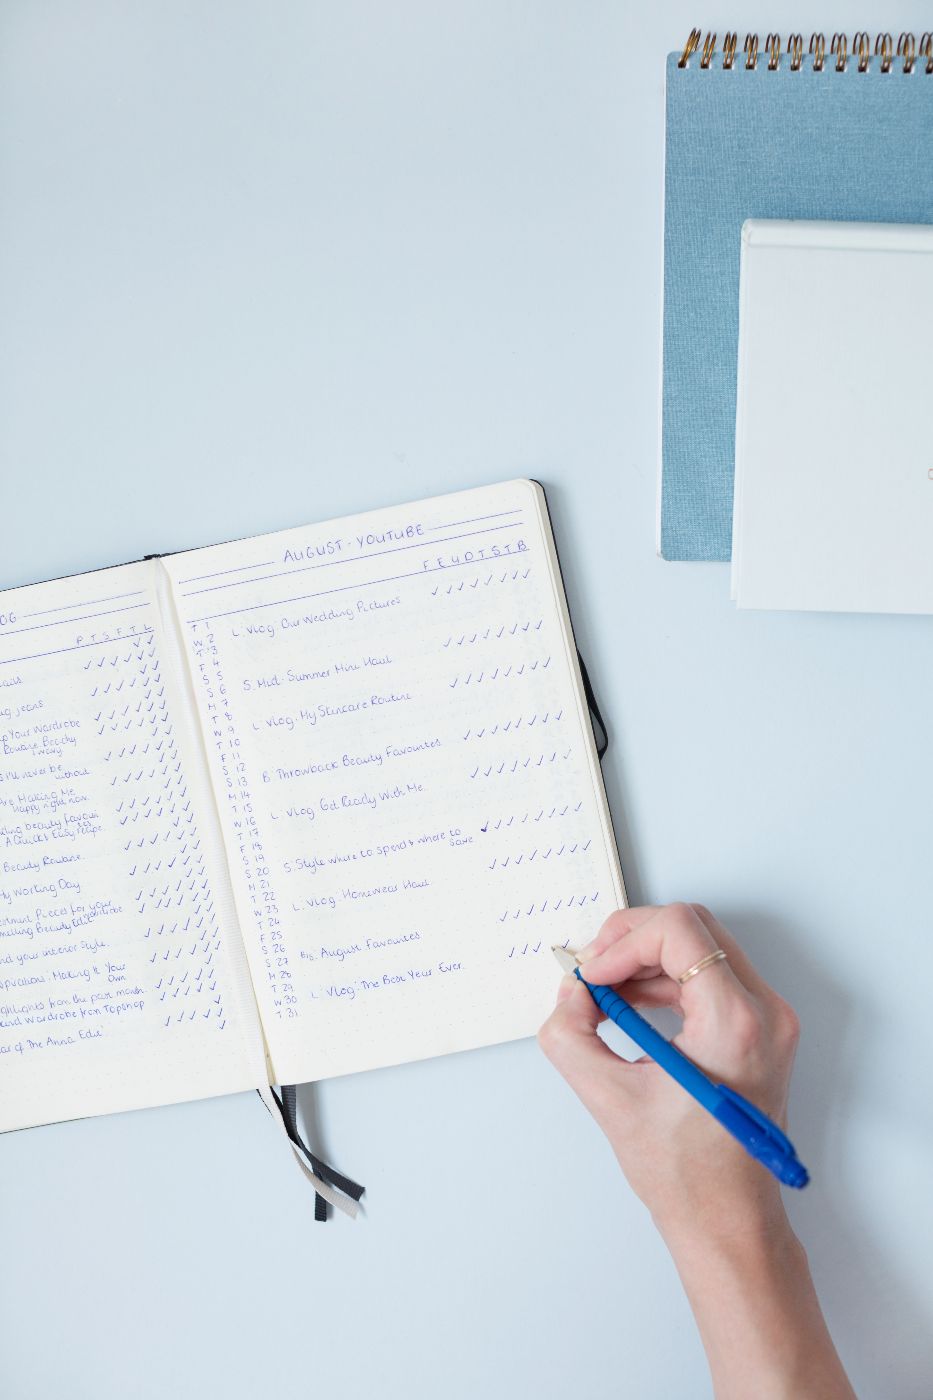 OG
P T S F T L
ug jeans
up Your Wardrobe
Routine Beachy
wavy
I'll never be
without
Are Making Me
Happy right now.
beauty favour
ites
A Quick & Easy recipe.
Beauty Routine
My Working Day
Pieces for your
wardrobe
Beauty Edit
nd your interior Style.
Making It Your
Own
ghlights from the past month.
and Wardrobe from Topshop
ar of The Anna Edit'
AUGUST · YOUTUBE
F E U D T S T B
T 1
W 2 L: Vlog: Our Wedding Pictures
T 3
F 4
S 5
S 6 S: Mid-Summer Mini Haul
M 7
T 8
W 9 L: Vlog: My Skincare Routine
T 10
F 11
S 12
S 13 B: Throwback Beauty Favourites
M 14
T 15
W 16 L: Vlog: Get Ready With Me
T 17
F 18
S 19
S 20 S: Style where to spend & where to
save
M 21
T 22
W 23 L: Vlog: Homeware Haul
T 24
F 25
S 26
S 27 B/S: August Favourites
M 28
T 29
W 30 L: Vlog: The Best Year Ever.
T 31